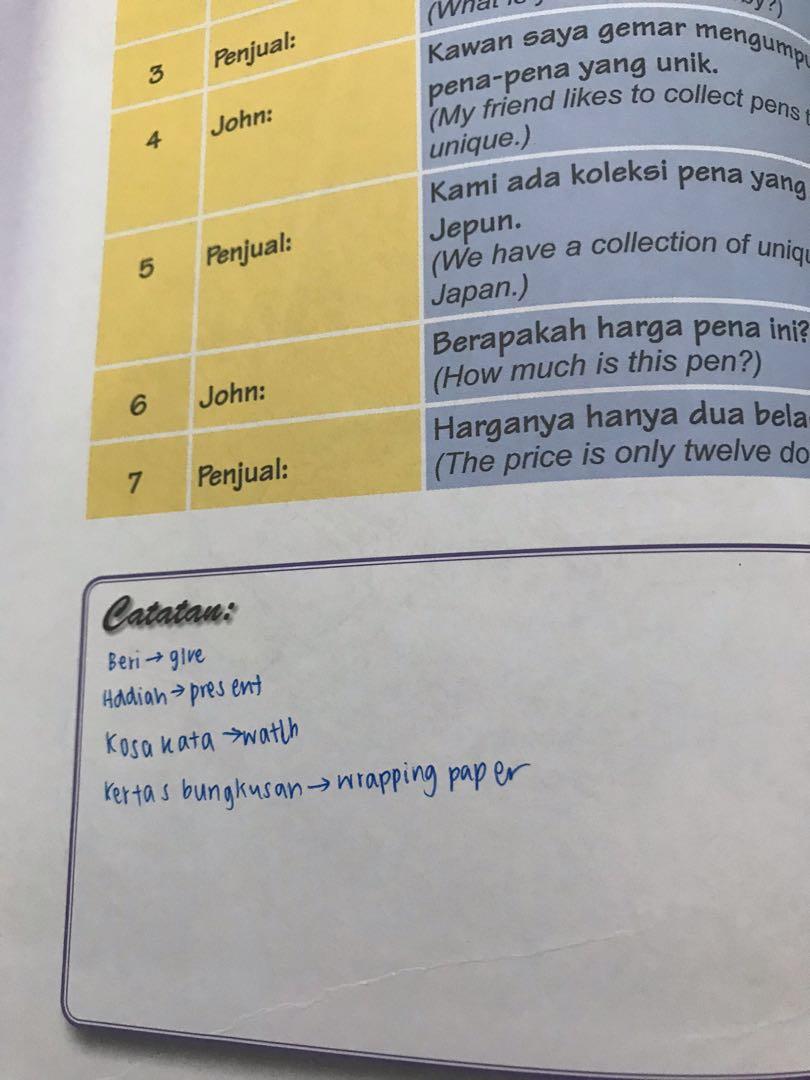 (What is
3 Penjual: Kawan saya gemar
pena-pena yang unik.
4 John: (My friend likes to collect pens
unique.)
Kami ada koleksi pena yang
Jepun.
5 Penjual: (We have a collection of
Japan.)
Berapakah harga pena ini?
6 John: (How much is this pen?)
Harganya hanya dua
7 Penjual: (The price is only twelve
Catatan:
Beri → give
Hadiah → present
Kosa kata →
Kertas bungkusan → wrapping paper